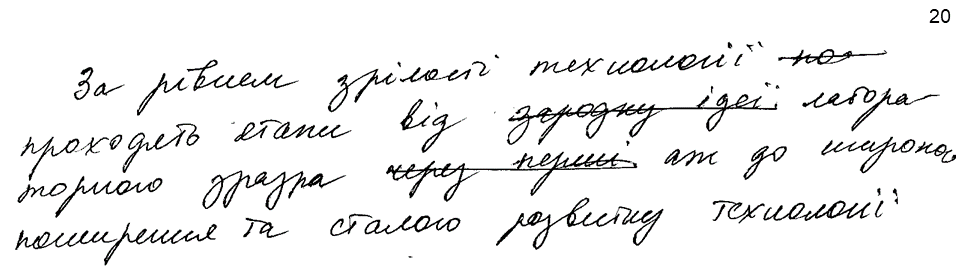 20
За рівнем зрілості технології ~~по~~
проходять етапи від ~~зародку ідеї~~ лабора
торного зразра ~~через перші~~ аж до широкого
поширення та сталого розвитку технології